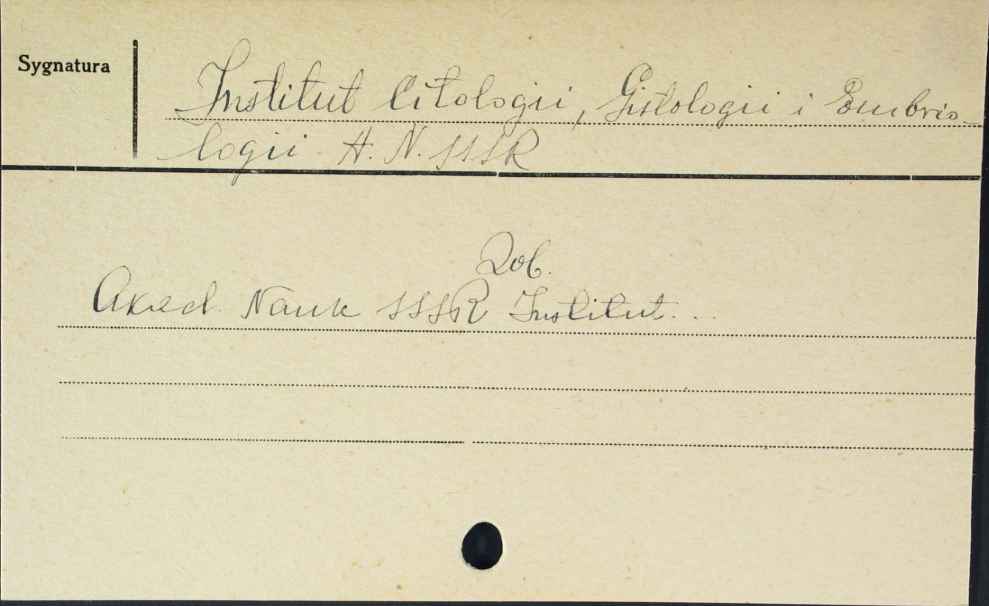 Sygnatura
Institut Citologii, Gistologii i Embrio-
logii A. N. SSSR
Zob.
Akad. Nauk SSSR Institut...